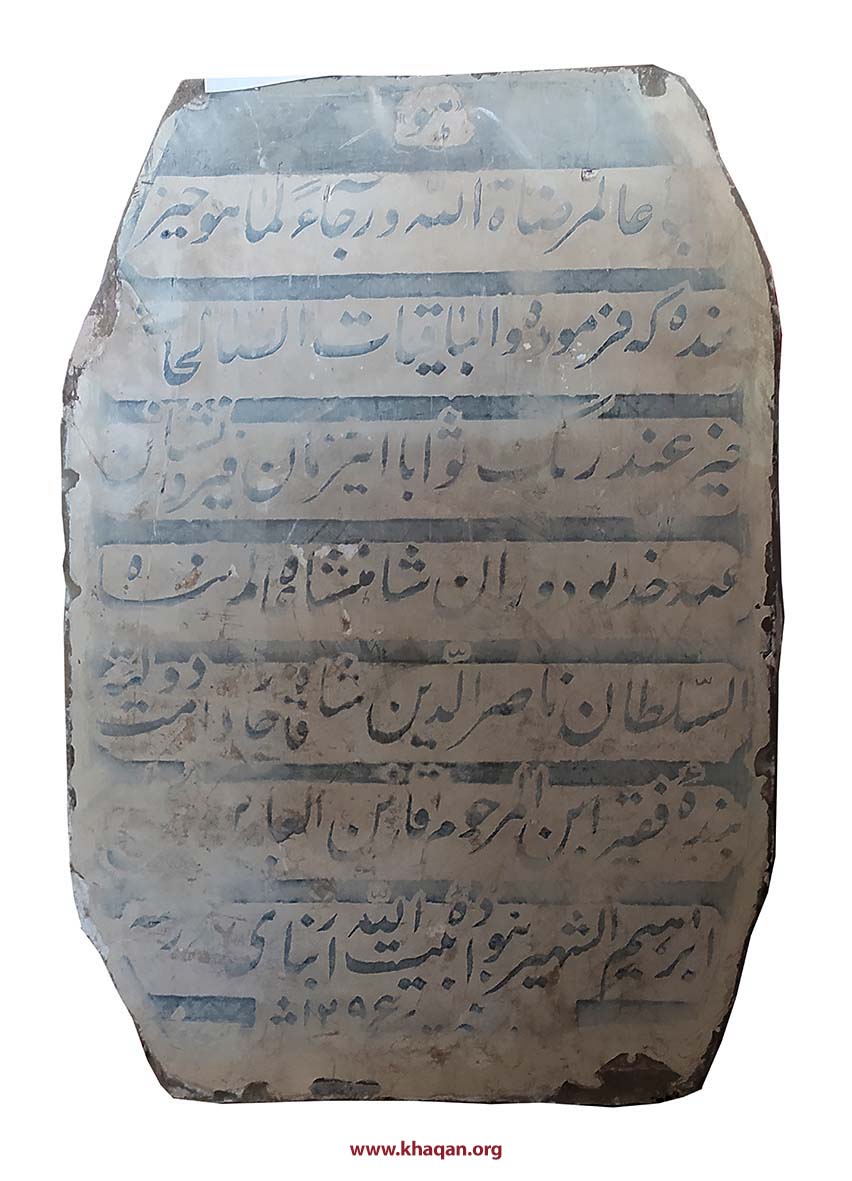 هو
لمرضاة الله و رجآءً لما هو خیر
بنده که فرموده والباقیات الصالحا
خیر عند ربک ثوابا این زمان فیروز نشان
عهد خدیو دوران شاهنشاه عالم پناه
السّلطان ناصر الدّین شاه قاجار دامت دولته
بندهٔ فقیر ابن المرحوم آقا زین العابدین
ابرهیم الشهیر بنواده بیت اللّه بنای
۱۲۹۶
www.khaqan.org